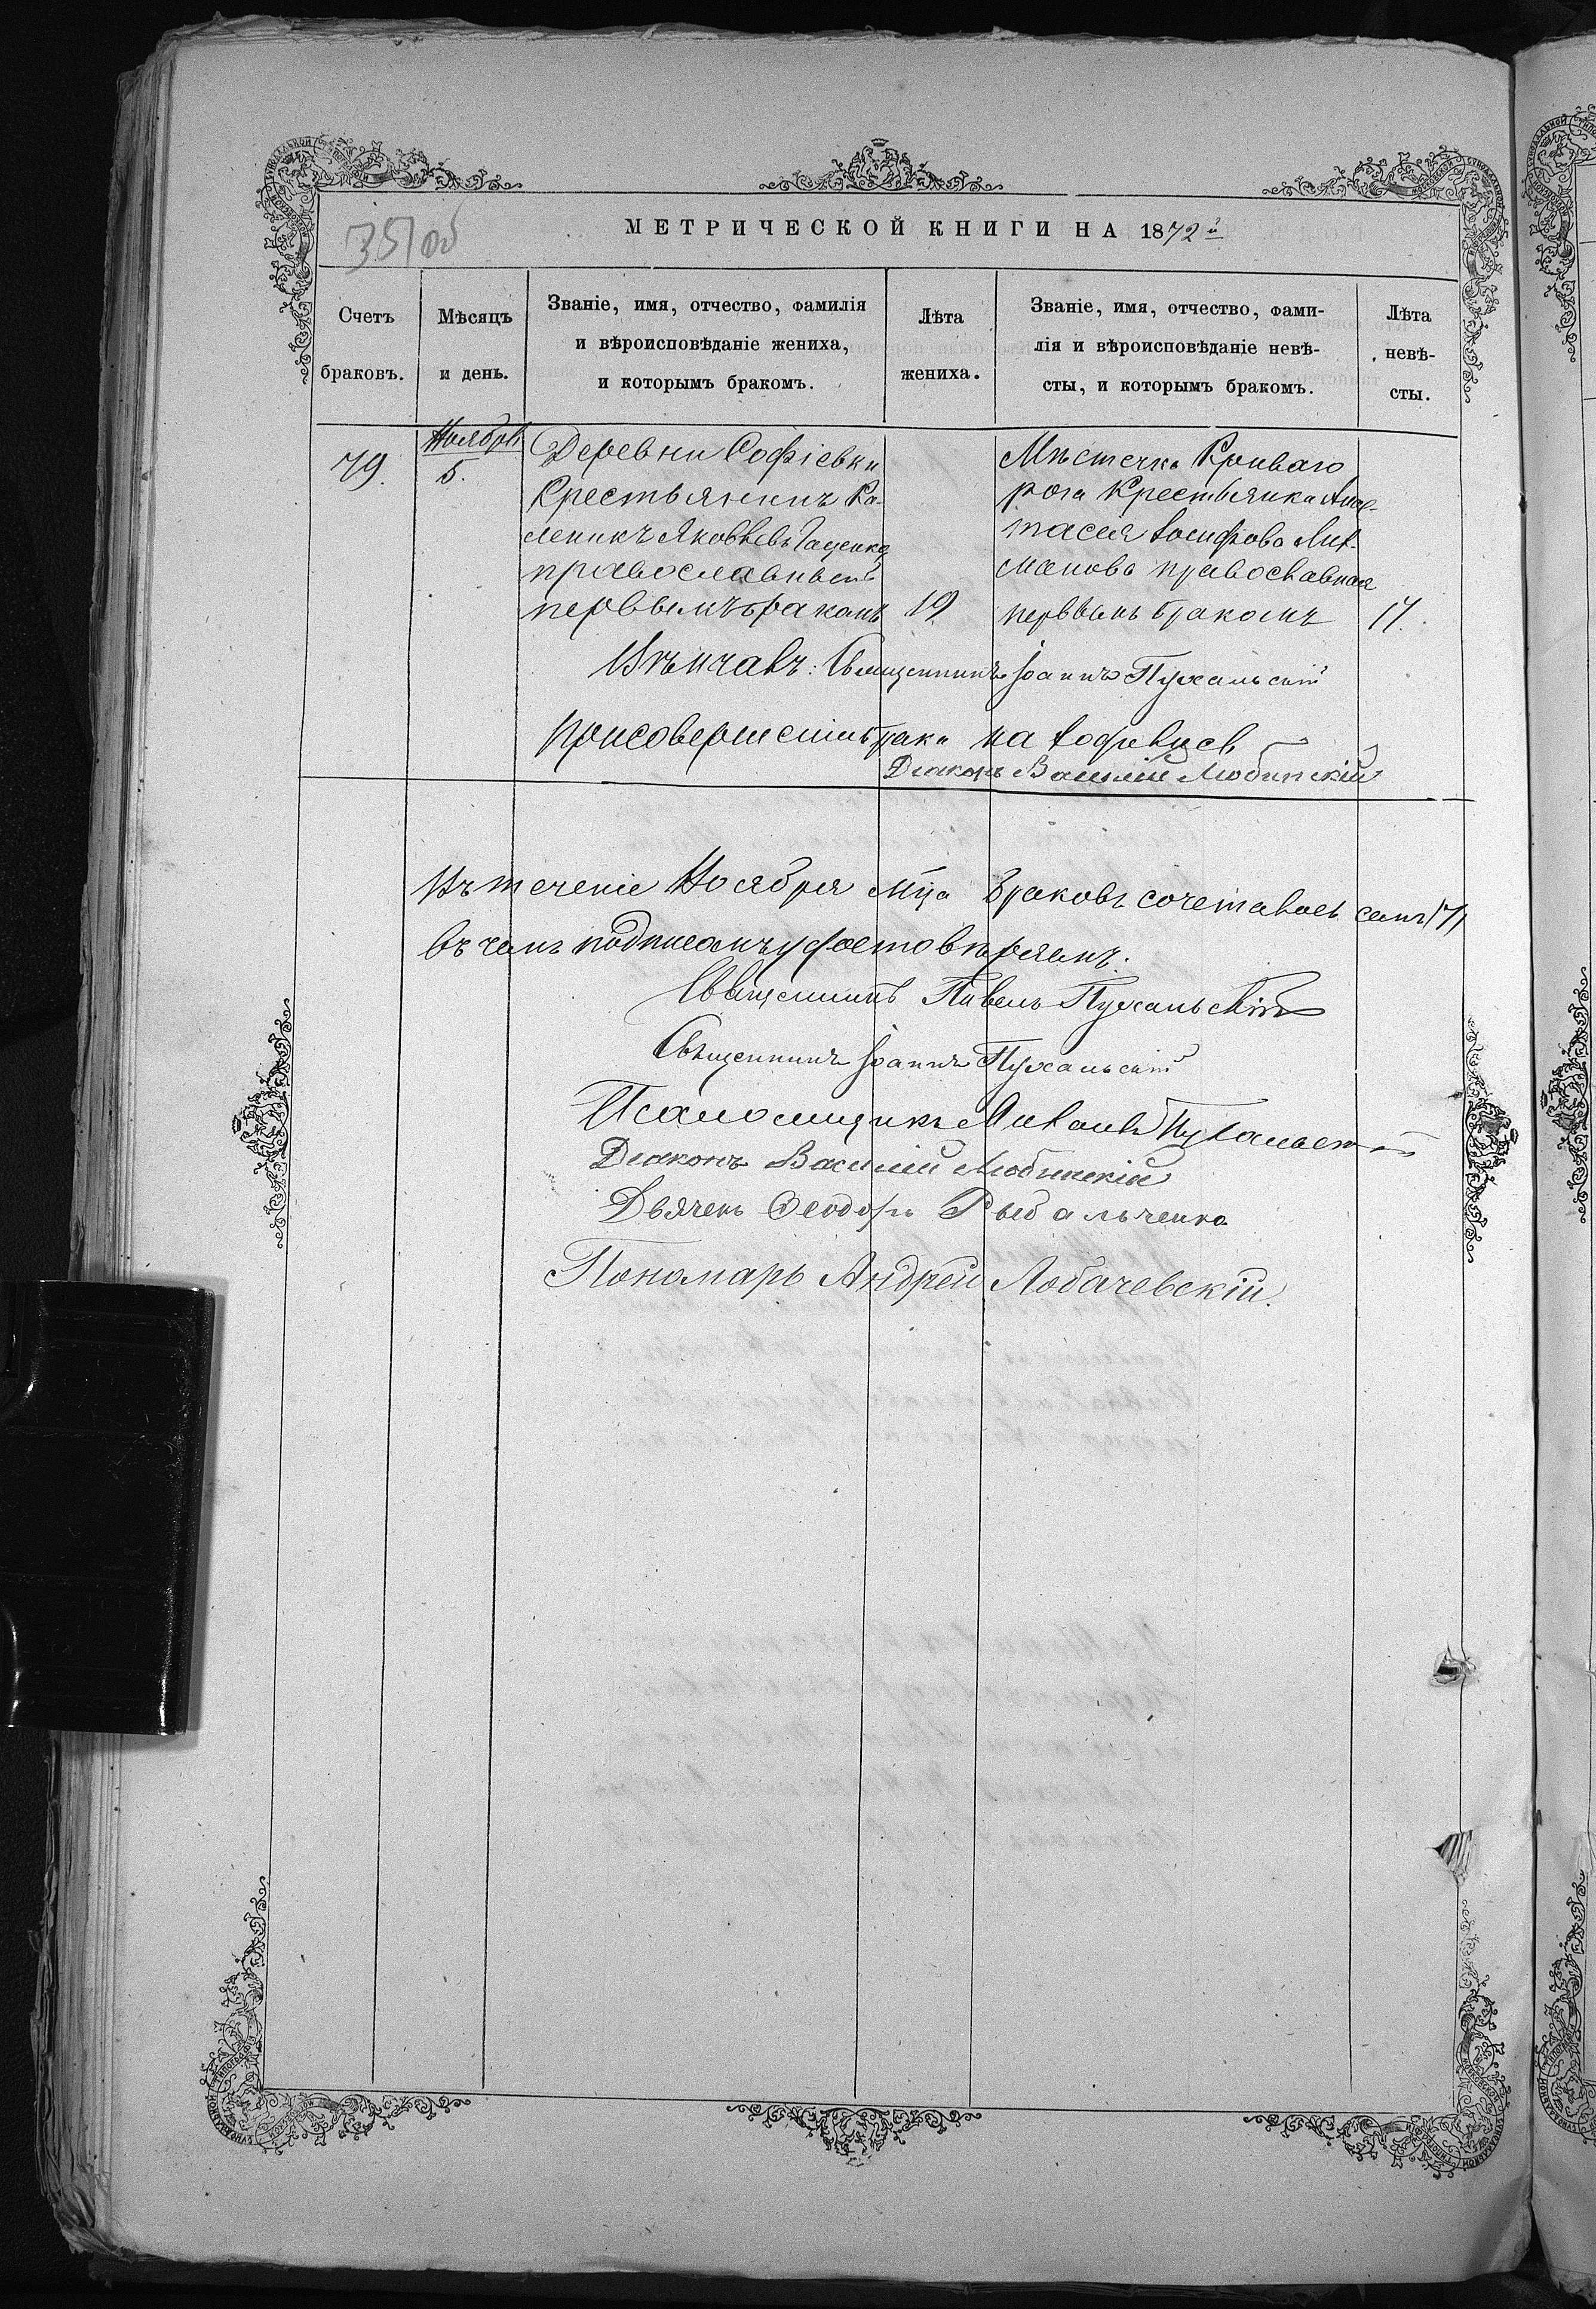 35 об
МЕТРИЧЕСКОЙ КНИГИ НА 1872й
Счетъ браковъ.
Мѣсяцъ и день.
Званіе, имя, отчество, фамилія
и вѣроисповѣданіе жениха,
и которымъ бракомъ.
Лѣта жениха.
Званіе, имя, отчество, фами-
лія и вѣроисповѣданіе невѣ-
сты, и которымъ бракомъ.
Лѣта невѣ-
сты.
79.
Ноябрь
5.
Деревни Софіевки
Крестьянинъ Ка-
леникъ Яковлевъ Гаценко
православный
первымъ бракомъ
19
Мѣстечка Криваго
рога Крестьянка Анас-
тасия Іосифова
православная
первымъ бракомъ
17.
Вѣнчалъ: Священникъ Іоаннъ Пухальскій
При совершеніи брака на
Діаконъ Василій Любинскій
Въ теченіе Ноября мца браковъ сочеталось семь /7/
въ чемъ подписомъ удостовѣряемъ.
Священникъ Павелъ Пухальскій
Священникъ Іоаннъ Пухальскій
Псаломщикъ Пухальскій
Діаконъ Василій Любинскій
Дьячекъ Ѳеодоръ Рыбальченко
Пономарь Андрей Лобачевскій.